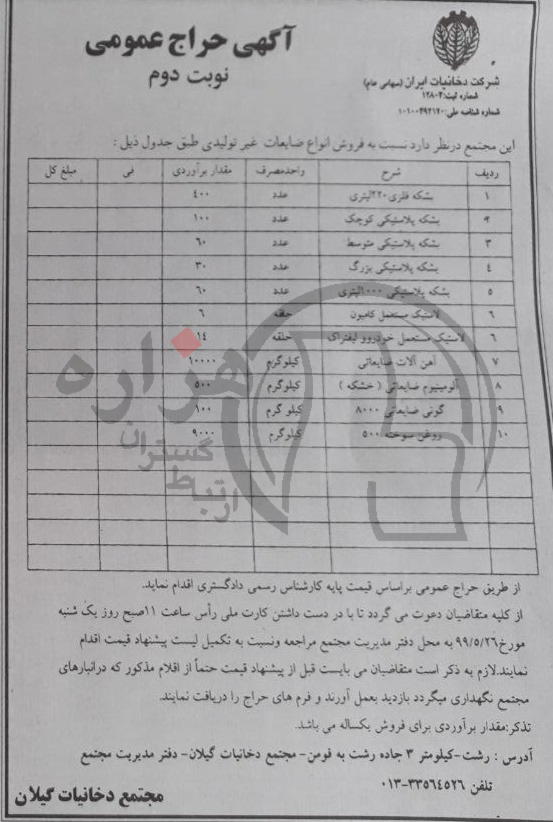 آگهی حراج عمومی
نوبت دوم
شرکت دخانیات ایران (سهامی عام)
شماره ثبت: ۱۲۸۰۴
شماره شناسه ملی: ۱۰۱۰۰۴۹۲۱۲۰
این مجتمع درنظر دارد نسبت به فروش انواع ضایعات غیر تولیدی طبق جدول ذیل :
ردیف شرح واحدمصرف مقدار برآوردی فی مبلغ کل
۱ بشکه فلزی ۲۲۰لیتری عدد ۴۰۰
۲ بشکه پلاستیکی کوچک عدد ۱۰۰
۳ بشکه پلاستیکی متوسط عدد ۶۰
۴ بشکه پلاستیکی بزرگ عدد ۳۰
۵ بشکه پلاستیکی ۱۰۰۰لیتری عدد ۶۰
۶ لاستیک مستعمل کامیون حلقه ۶
۶ لاستیک مستعمل خودروو لیفتراک حلقه ۱۴
۷ آهن آلات ضایعاتی کیلوگرم ۱۰۰۰۰
۸ آلومینیوم ضایعاتی ( خشکه ) کیلوگرم ۵۰۰
۹ گونی ضایعاتی ۸۰۰۰ کیلو گرم ۱۰۰
۱۰ روغن سوخته ۵۰۰ کیلوگرم ۹۰۰۰
هزاره
گستران
ارتباط
از طریق حراج عمومی براساس قیمت پایه کارشناس رسمی دادگستری اقدام نماید.
از کلیه متقاضیان دعوت می گردد تا با در دست داشتن کارت ملی رأس ساعت ۱۱صبح روز یک شنبه
مورخ۹۹/۵/۲۶ به محل دفتر مدیریت مجتمع مراجعه ونسبت به تکمیل لیست پیشنهاد قیمت اقدام
نمایند.لازم به ذکر است متقاضیان می بایست قبل از پیشنهاد قیمت حتماً از اقلام مذکور که درانبارهای
مجتمع نگهداری میگردد بازدید بعمل آورند و فرم های حراج را دریافت نمایند.
تذکر:مقدار برآوردی برای فروش یکساله می باشد.
آدرس : رشت-کیلومتر ۳ جاده رشت به فومن- مجتمع دخانیات گیلان- دفتر مدیریت مجتمع
تلفن ۳۳۵۶۴۵۲۶-۰۱۳
مجتمع دخانیات گیلان